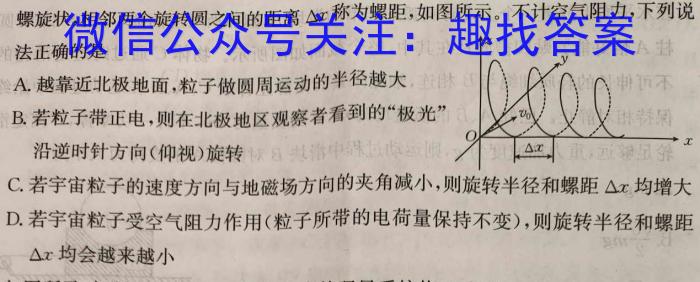 螺旋状,相邻两个旋转圆之间的距离 Δx 称为螺距,如图所示。不计空气阻力,下列说
法正确的是
微信公众号关注：趣找答案
A. 越靠近北极地面,粒子做圆周运动的半径越大
B. 若粒子带正电,则在北极地区观察者看到的“极光”
沿逆时针方向(仰视)旋转
y
v₀
O
Δx
x
C. 若宇宙粒子的速度方向与地磁场方向的夹角减小,则旋转半径和螺距 Δx 均增大
D. 若宇宙粒子受空气阻力作用(粒子所带的电荷量保持不变),则旋转半径和螺距
Δx 均会越来越小